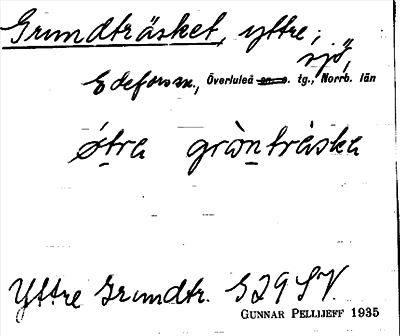 Grundträsket, yttre,
sjö,
Edefors sn., Överluleå en o. tg., Norrb. län
ó̱tra grò̱nträska
Yttre Grundtr. G29 SV.
GUNNAR PELLIJEFF 1935